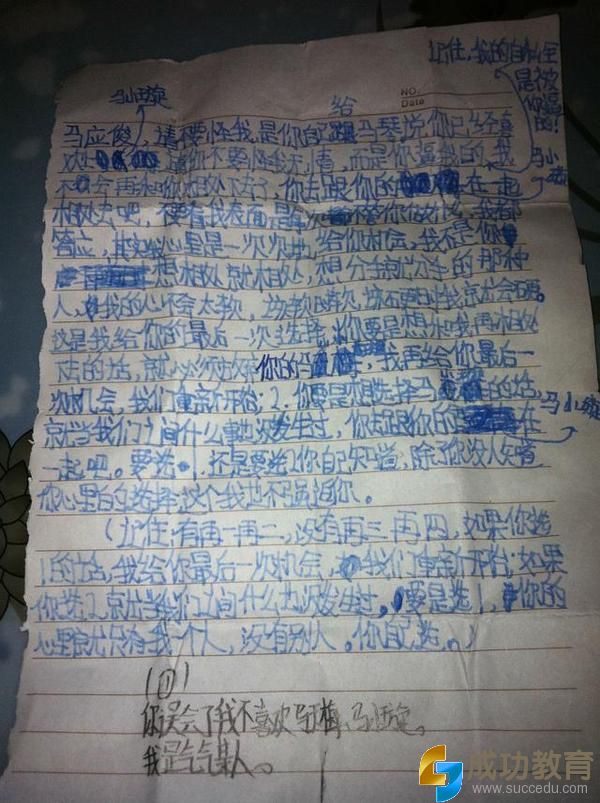 记住，我的自私全
是被
你逼
的！
马小梅
马玉璇
给
NO.
Date
马应俊，请不要怪我，是你自己跟马琴说你已经喜
欢 请你不要怪我无情，而是你逼我的，我
不会再和你相处下去了，你去跟你的 在一起
相处吧，不要看我表面是 不管你做什么，我都
答应，其实我心里是一次次地给你机会，我不是你
想相处就相处，想分手就分手的那种
人，我的心不会太软，
这是我给你的最后一次选择，1.你要是想和我再相处
下去的话，就必须 你的马 ，我再给你最后一
次机会，我们重新开始；2.你要是想选择马 的话，马小梅
就当我们之间什么事也没发生过，你去跟你的 在
一起吧。要选1，还是要选2你自己知道，除了你没人知道
你心里的选择，这个我也不强迫你。
（记住：有再一再二，没有再三再四，如果你选
1的话，我给你最后一次机会，我们重新开始；如果
你选2，就当我们之间什么也没发生过，要是选1，你的
心里就只有我一个人，没有别人。你自己选。）
（回）
你误会了我不喜欢马玉梅、马玉璇。
我是
成功教育
www.succedu.com